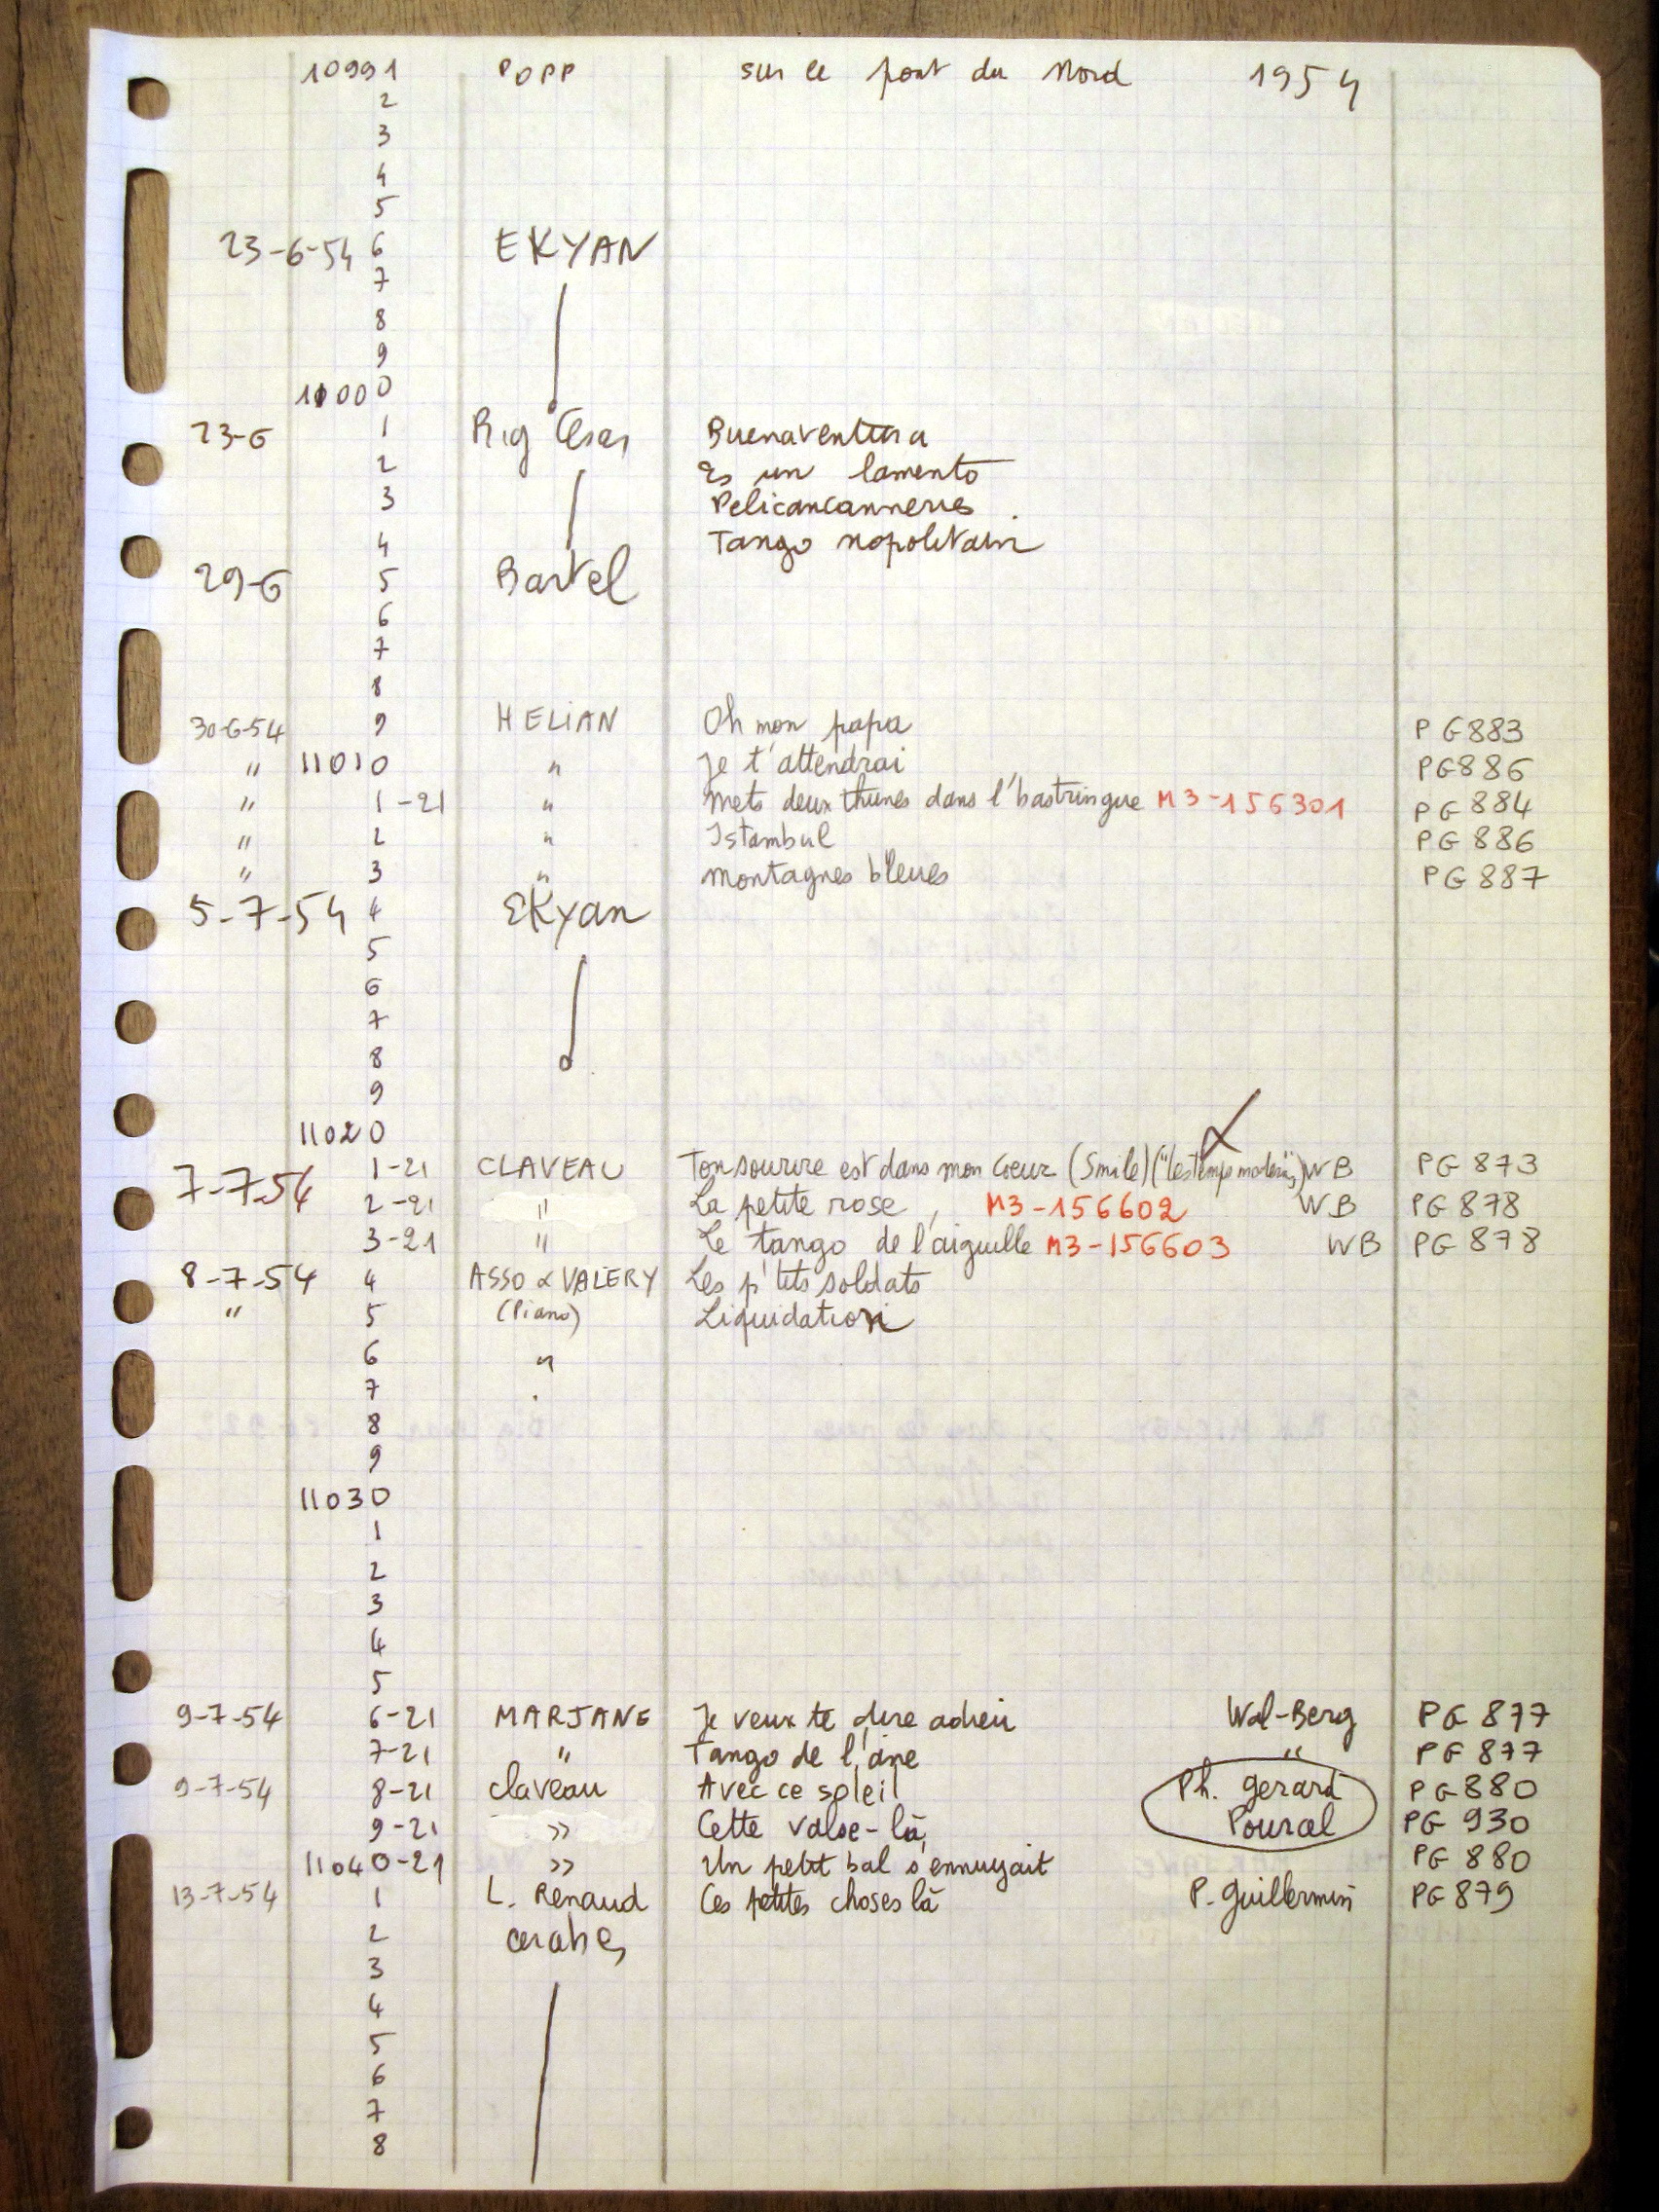 10991 POPP sur le pont du Nord 1954
2
3
4
5
23-6-54 6 EKYAN
7
8
9
11000
23-6 1 Rig Cesar Buenaventura
2 Es un lamento
3 Pelicancanneries
4 Tango napolitain
29-6 5 Bartel
6
7
8
30-6-54 9 HELIAN Oh mon papa PG883
" 11010 " Je t'attendrai PG886
" 1-21 " Mets deux thunes dans l'bastringue M3-156301 PG884
" 2 " Istambul PG886
" 3 " montagnes bleues PG887
5-7-54 4 EKyan
5
6
7
8
9
11020
7-7-54 1-21 CLAVEAU Ton sourire est dans mon coeur (Smile) ("les temps modernes") WB PG873
2-21 " La petite rose, M3-156602 WB PG878
3-21 " Le tango de l'aiguille M3-156603 WB PG878
8-7-54 4 ASSO & VALERY Les p'tits soldats
" 5 (Piano) Liquidation
6 "
7
8
9
11030
1
2
3
4
5
9-7-54 6-21 MARJANE Je veux te dire adieu Wal-Berg PG877
7-21 " Tango de l'âne " PG877
9-7-54 8-21 Claveau Avec ce soleil Ph. Gerard PG880
9-21 " Cette valse-là Pourcel PG930
11040-21 " Un petit bal s'ennuyait PG880
13-7-54 1 L. Renaud Ces petites choses là P. Guillermin PG879
2 arabes
3
4
5
6
7
8